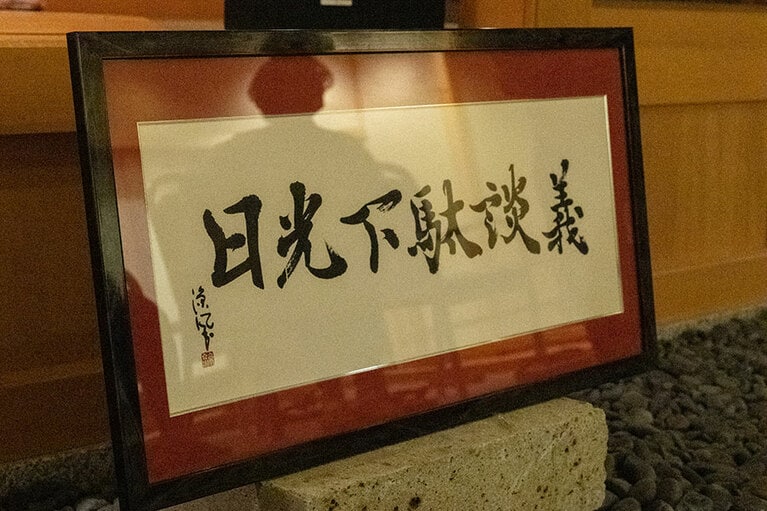 日光下駄談義